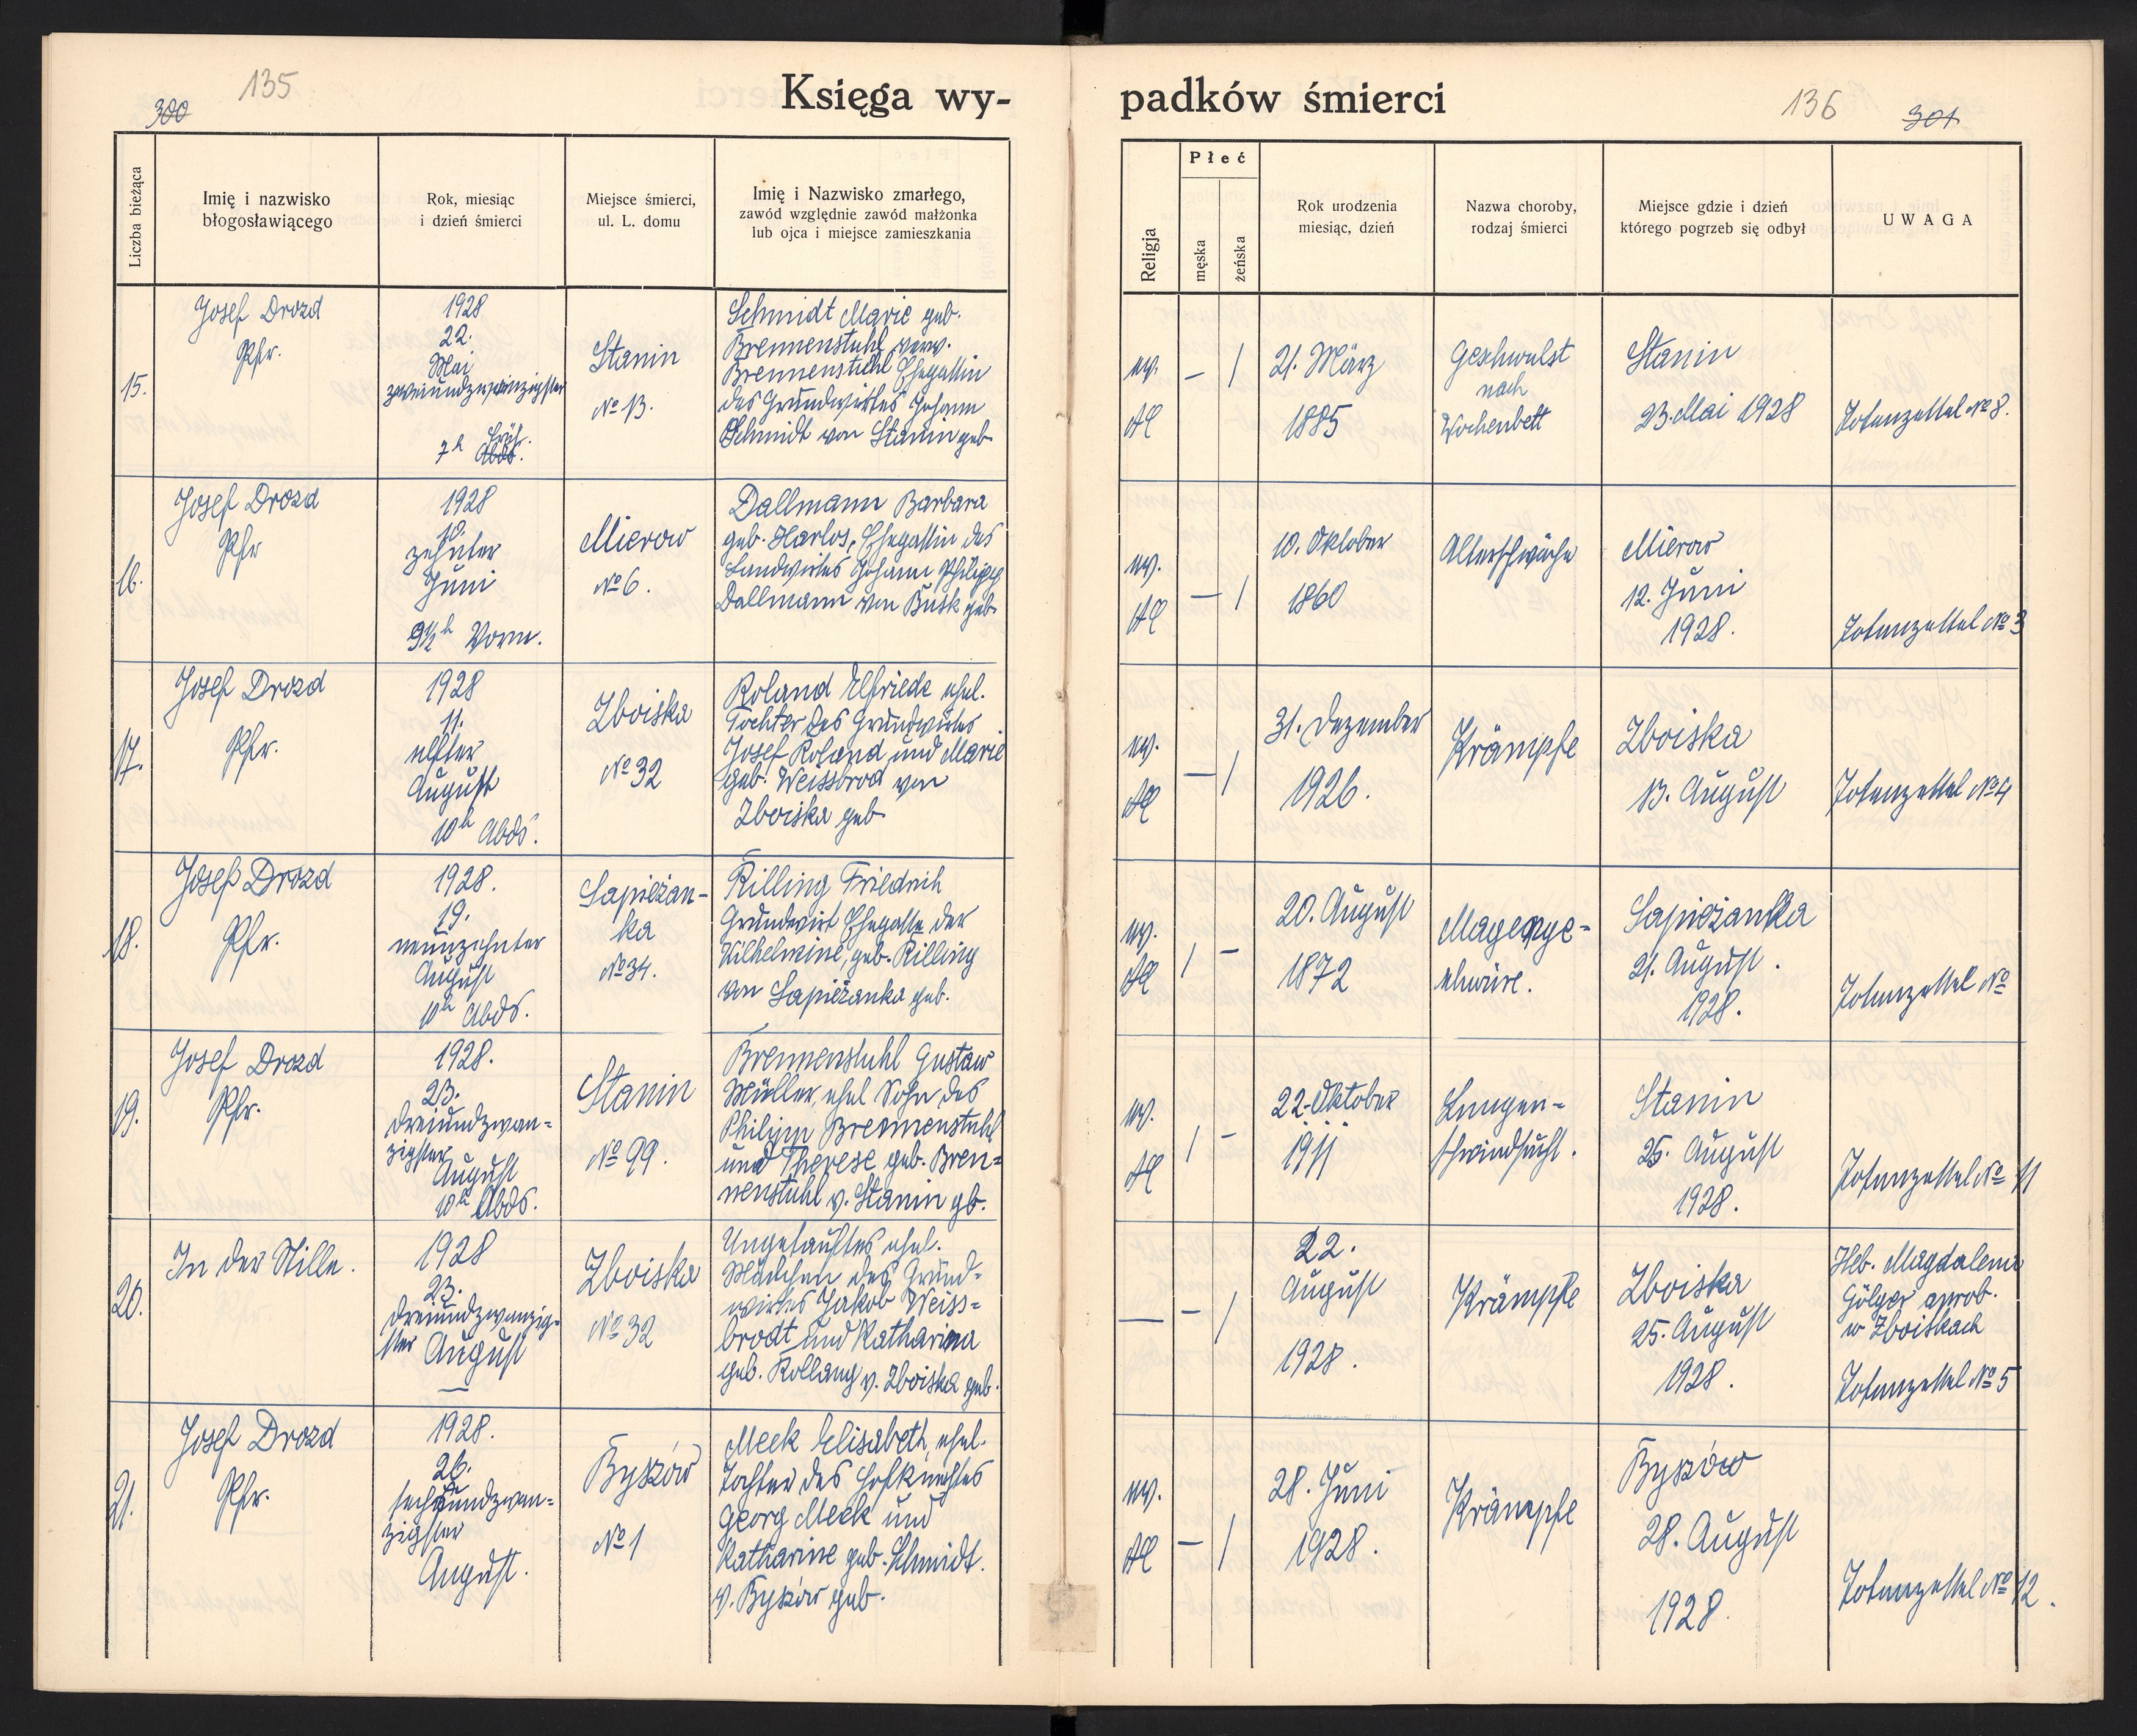 135
300
Księga wy-
Liczba bieżąca
Imię i nazwisko
błogosławiącego
Rok, miesiąc
i dzień śmierci
Miejsce śmierci,
ul. L. domu
Imię i Nazwisko zmarłego,
zawód względnie zawód małżonka
lub ojca i miejsce zamieszkania
15.
Josef Drozd
Pfr.
1928
22.
Mai
zweiundzwanzigster
7h früh.
Abds.
Stanin
No 13.
Schmidt Marie geb.
Brennenstuhl, verw.
Brennenstuhl Ehegattin
des Grundwirtes Johann
Schmidt von Stanin geb.
16.
Josef Drozd
Pfr
1928
10.
zehnter
Juni
9½h Vorm.
Mierow
No 6.
Dallmann Barbara
geb. Harlos, Ehegattin des
Landwirtes Johann Philipp
Dallmann von Busk geb.
17.
Josef Drozd
Pfr.
1928
11.
elfter
August
10h Abds.
Zboiska
No 32
Roland Elfriede ehel.
Tochter des Grundwirtes
Josef Roland und Marie
geb. Weissbrod von
Zboiska geb.
18.
Josef Drozd
Pfr.
1928.
19.
neunzehnter
August
10h Abds.
Sapieżan-
ka
No 34.
Rilling Friedrich
Grundwirt Ehegatte der
Wilhelmine, geb. Rilling
von Sapieżanka geb.
19.
Josef Drozd
Pfr.
1928.
23.
dreiundzwan=
zigster
August
10h Abds.
Stanin
No 99.
Brennenstuhl Gustaw
Müller, ehel Sohn des
Philipp Brennenstuhl
und Therese geb. Bren=
nenstuhl v. Stanin gb.
20.
In der Stille.
1928
23.
dreiundzwanzig-
ster August
Zboiska
No 32
Ungetauftes ehel.
Mädchen des Grund-
wirtes Jakob Weiss=
brodt und Katharina
geb. Rollang v. Zboiska geb.
21.
Josef Drozd
Pfr.
1928.
26.
sechsundzwan=
zigster
August.
Byszów
No 1
Meck Elisabeth, ehel.
Tochter des Hofknechtes
Georg Meck und
Katharine geb. Schmidt.
v. Byszów geb.
padków śmierci
136
301
Religja
Płeć
męska
żeńska
Rok urodzenia
miesiąc, dzień
Nazwa choroby,
rodzaj śmierci
Miejsce gdzie i dzień
którego pogrzeb się odbył
UWAGA
ev.
AC
— /
21. März
1885
Geschwulst
nach
Wochenbett
Stanin
23. Mai 1928
Totenzettel No 8.
ev.
AC
— /
10. Oktober
1860
Altersschwäche
Mierow
12. Juni
1928.
Totenzettel No 3
ev.
AC
— /
31. Dezember
1926.
Krämpfe
Zboiska
13. August
Totenzettel No 4
ev.
AC
/ —
20. August
1872
Magenge=
schwüre.
Sapieżanka
21. August.
1928.
Totenzettel No
ev.
AC
/ -
22. Oktober
1911
Lungen=
schwindsucht.
Stanin
25. August
1928.
Totenzettel No 11
— — /
22.
August
1928.
Krämpfe
Zboiska
25. August
1928.
Heb. Magdalena
aprob.
w Zboiskach
Totenzettel No 5
ev.
AC
— /
28. Juni
1928.
Krämpfe
Byszów
28. August
1928.
Totenzettel No 12.